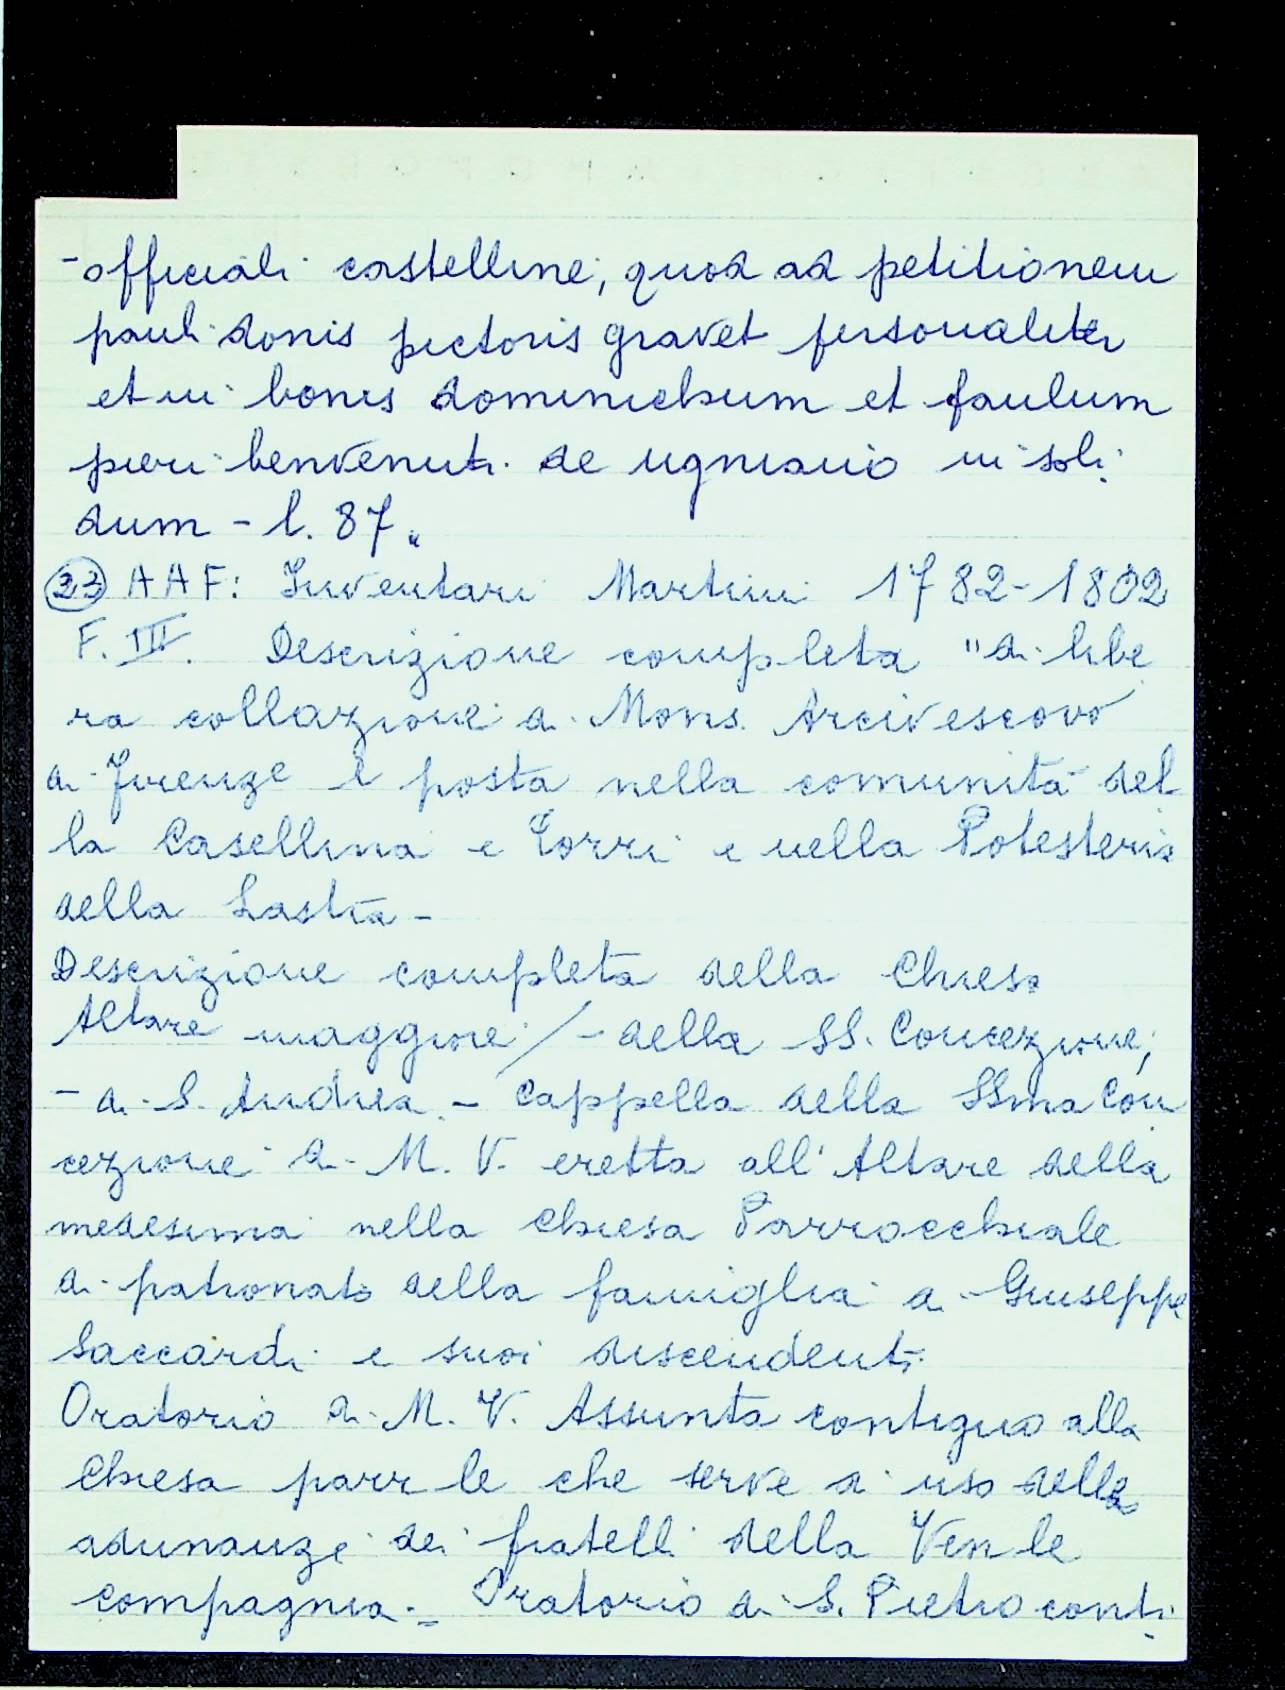 -officiali castelline, quod ad petitionem
pauli donis pictoris gravet personaliter
et in bonis dominichum et paulum
pieri benvenuti de ugniano in soli
dum - l. 87.
(23) AAF: Inventari Martini 1782-1802
F. III. Descrizione completa "di libe
ra collazione di Mons. Arcivescovo
di Firenze è posta nella comunità del
la Casellina e Torri e nella Potesteria
della Lastra -
Descrizione completa della Chiesa
Altare maggiore / - della SS. Concezione;
- di S. Andrea - Cappella della SSma Con
cezione di M. V. eretta all' Altare della
medesima nella chiesa Parrocchiale
di patronato della famiglia di Giuseppe
Saccardi e suoi discendenti
Oratorio di M. V. Assunta contiguo alla
Chiesa parr le che serve a uso delle
adunanze dei fratelli della Ven le
compagnia. - Oratorio di S. Pietro conti